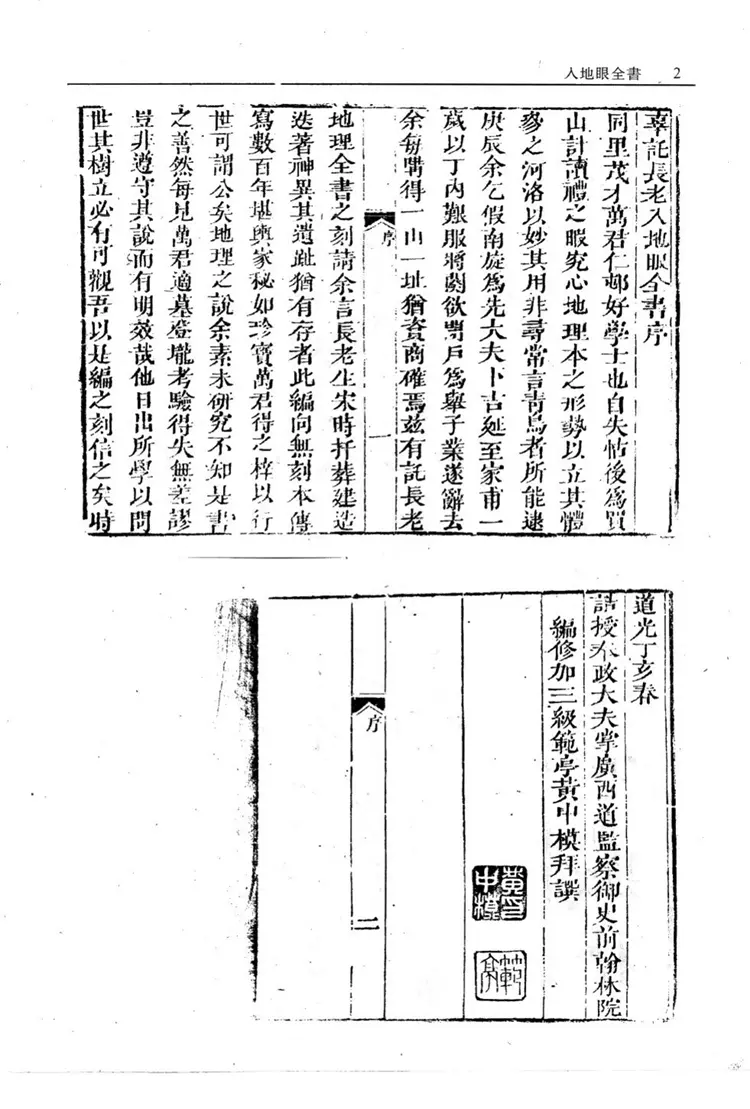 入地眼全書 2
辜託長老入地眼全書序
同里茂才萬君仁邨好學士也自失怙後為買
山計讀禮之暇究心地理本之形勢以立其體
參之河洛以妙其用非尋常言青烏者所能逮
庚辰余乞假南旋為先大夫卜吉延至家甫一
歲以丁內艱服將闋欲閉戶為舉子業遂辭去
余每購得一山一址猶資商確焉茲有託長老
序
一
地理全書之刻請余言長老生宋時扦葬建造
迭著神異其遺趾猶有存者此編向無刻本傳
寫數百年堪輿家秘如珍寶萬君得之梓以行
世可謂公矣地理之說余素未研究不知是書
之善然每見萬君適墓登壠考驗得失無差謬
豈非遵守其說而有明效哉他日出所學以問
世其樹立必有可觀吾以是編之刻信之矣時
道光丁亥春
誥授奉政大夫掌廣西道監察御史前翰林院
編修加三級範亭黃中模拜譔
黃中模印
範亭
序
二